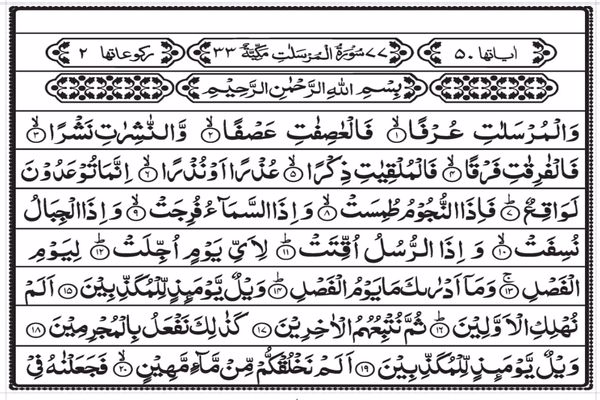 اٰيَاتُهَا ٥٠ ٧٧ سُوْرَةُ الْمُرْسَلٰتِ مَكِّيَّةٌ ٣٣ رُكُوْعَاتُهَا ٢
بِسْمِ اللّٰهِ الرَّحْمٰنِ الرَّحِيْمِ
وَالْمُرْسَلٰتِ عُرْفًا ۙ﴿١﴾ فَالْعٰصِفٰتِ عَصْفًا ۙ﴿٢﴾ وَّالنّٰشِرٰتِ نَشْرًا ۙ﴿٣﴾
فَالْفٰرِقٰتِ فَرْقًا ۙ﴿٤﴾ فَالْمُلْقِيٰتِ ذِكْرًا ۙ﴿٥﴾ عُذْرًا اَوْ نُذْرًا ۙ﴿٦﴾ اِنَّمَا تُوْعَدُوْنَ
لَوَاقِعٌ ؕ﴿٧﴾ فَاِذَا النُّجُوْمُ طُمِسَتْ ۙ﴿٨﴾ وَ اِذَا السَّمَآءُ فُرِجَتْ ۙ﴿٩﴾ وَ اِذَا الْجِبَالُ
نُسِفَتْ ۙ﴿١٠﴾ وَ اِذَا الرُّسُلُ اُقِّتَتْ ؕ﴿١١﴾ لِاَيِّ يَوْمٍ اُجِّلَتْ ؕ﴿١٢﴾ لِيَوْمِ
الْفَصْلِ ۚ﴿١٣﴾ وَمَاۤ اَدْرٰىكَ مَا يَوْمُ الْفَصْلِ ؕ﴿١٤﴾ وَيْلٌ يَّوْمَىِٕذٍ لِّلْمُكَذِّبِيْنَ ﴿١٥﴾ اَلَمْ
نُهْلِكِ الْاَوَّلِيْنَ ؕ﴿١٦﴾ ثُمَّ نُتْبِعُهُمُ الْاٰخِرِيْنَ ﴿١٧﴾ كَذٰلِكَ نَفْعَلُ بِالْمُجْرِمِيْنَ ﴿١٨﴾
وَيْلٌ يَّوْمَىِٕذٍ لِّلْمُكَذِّبِيْنَ ﴿١٩﴾ اَلَمْ نَخْلُقْكُّمْ مِّنْ مَّآءٍ مَّهِيْنٍ ۙ﴿٢٠﴾ فَجَعَلْنٰهُ فِيْ